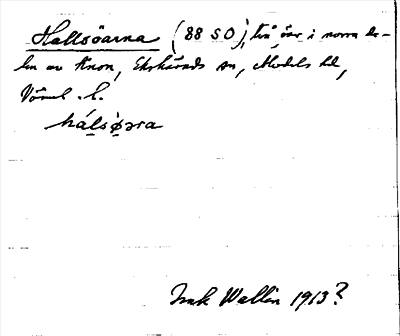 Hallsöarna (88 SO), två öar i norra de-
len av Knon, Ekshärads sn, Älvdals hd,
Värml. l.
hálsøara
Inrk Wallin 1913?